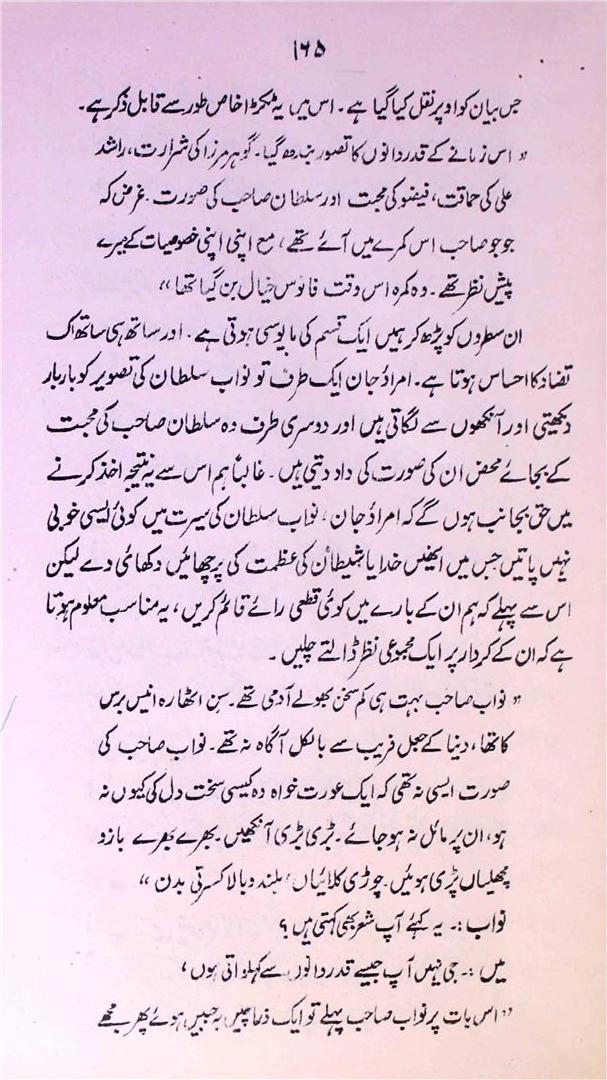 ۱۶۵
جس بیان کو اوپر نقل کیا گیا ہے۔ اس میں یہ ٹکڑا خاص طور سے قابل ذکر ہے۔
“اس زمانے کے قدر دانوں کا تصور بندھ گیا۔ گوہر مرزا کی شرارت، راشد
علی کی حماقت، فیضو کی محبت اور سلطان صاحب کی صورت۔ غرض کہ
جو جو صاحب اس کمرے میں آئے تھے، مع اپنی اپنی خصوصیات کے میرے
پیش نظر تھے۔ وہ کمرہ اس وقت فانوس خیال بن گیا تھا”
ان سطروں کو پڑھ کر ہمیں ایک قسم کی مایوسی ہوتی ہے۔ اور ساتھ ہی ساتھ اک
تضاد کا احساس ہوتا ہے۔ امراؤ جان ایک طرف تو نواب سلطان کی تصویر کو بار بار
دیکھتی اور آنکھوں سے لگاتی ہیں اور دوسری طرف وہ سلطان صاحب کی محبت
کے بجائے محض ان کی صورت کی داد دیتی ہیں۔ غالباً ہم اس سے یہ نتیجہ اخذ کرنے
میں حق بجانب ہوں گے کہ امراؤ جان، نواب سلطان کی سیرت میں کوئی ایسی خوبی
نہیں پاتیں جس میں انھیں خدا یا شیطان کی عظمت کی پرچھائیں دکھائی دے لیکن
اس سے پہلے کہ ہم ان کے بارے میں کوئی قطعی رائے قائم کریں، یہ مناسب معلوم ہوتا
ہے کہ ان کے کردار پر ایک مجموعی نظر ڈالتے چلیں۔
“نواب صاحب بہت ہی کم سخن بھولے آدمی تھے۔ سِن اٹھارہ انیس برس
کا تھا، دنیا کے جعل فریب سے بالکل آگاہ نہ تھے۔ نواب صاحب کی
صورت ایسی نہ تھی کہ ایک عورت خواہ وہ کیسی سخت دل کی کیوں نہ
ہو، ان پر مائل نہ ہو جائے۔ بڑی بڑی آنکھیں۔ بھرے بھرے بازو
مچھلیاں پڑی ہوئیں۔ چوڑی کلائیاں، بلند و بالا کسرتی بدن”
نواب :۔ یہ کہئے آپ شعر بھی کہتی ہیں؟
میں :۔ جی نہیں آپ جیسے قدر دانوں سے کہلواتی ہوں،
“اس بات پر نواب صاحب پہلے تو ایک ذرا چیں بہ جبیں ہوئے پھر مجھے